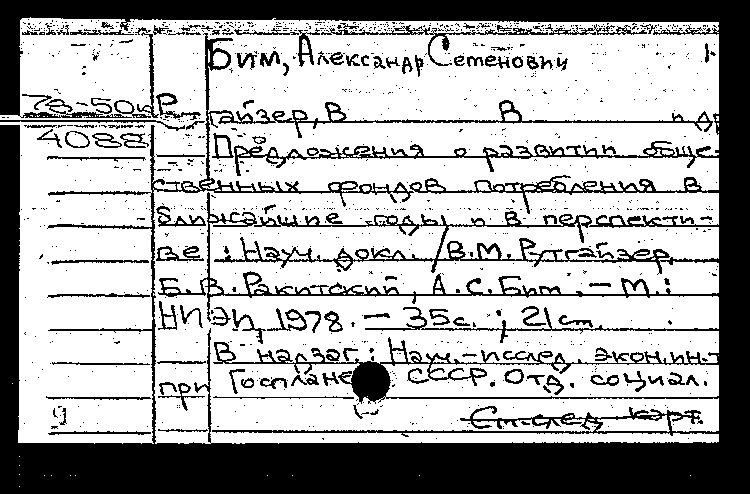 Бим, Александр Семенович
78-50к
4088
Р гайзер, В В и др
Предложения о развитии обще-
ственных фондов потребления в
ближайшие годы и в перспекти-
ве : Науч. докл. / В.М. Рутгайзер,
Б.В. Ракитский, А.С. Бим. – М. :
НИЭИ, 1978. – 35с. ; 21 см.
В надзаг.: Науч.-исслед. экон. ин-т
при Госплане СССР. Отд. социал.
9 См. след карт.